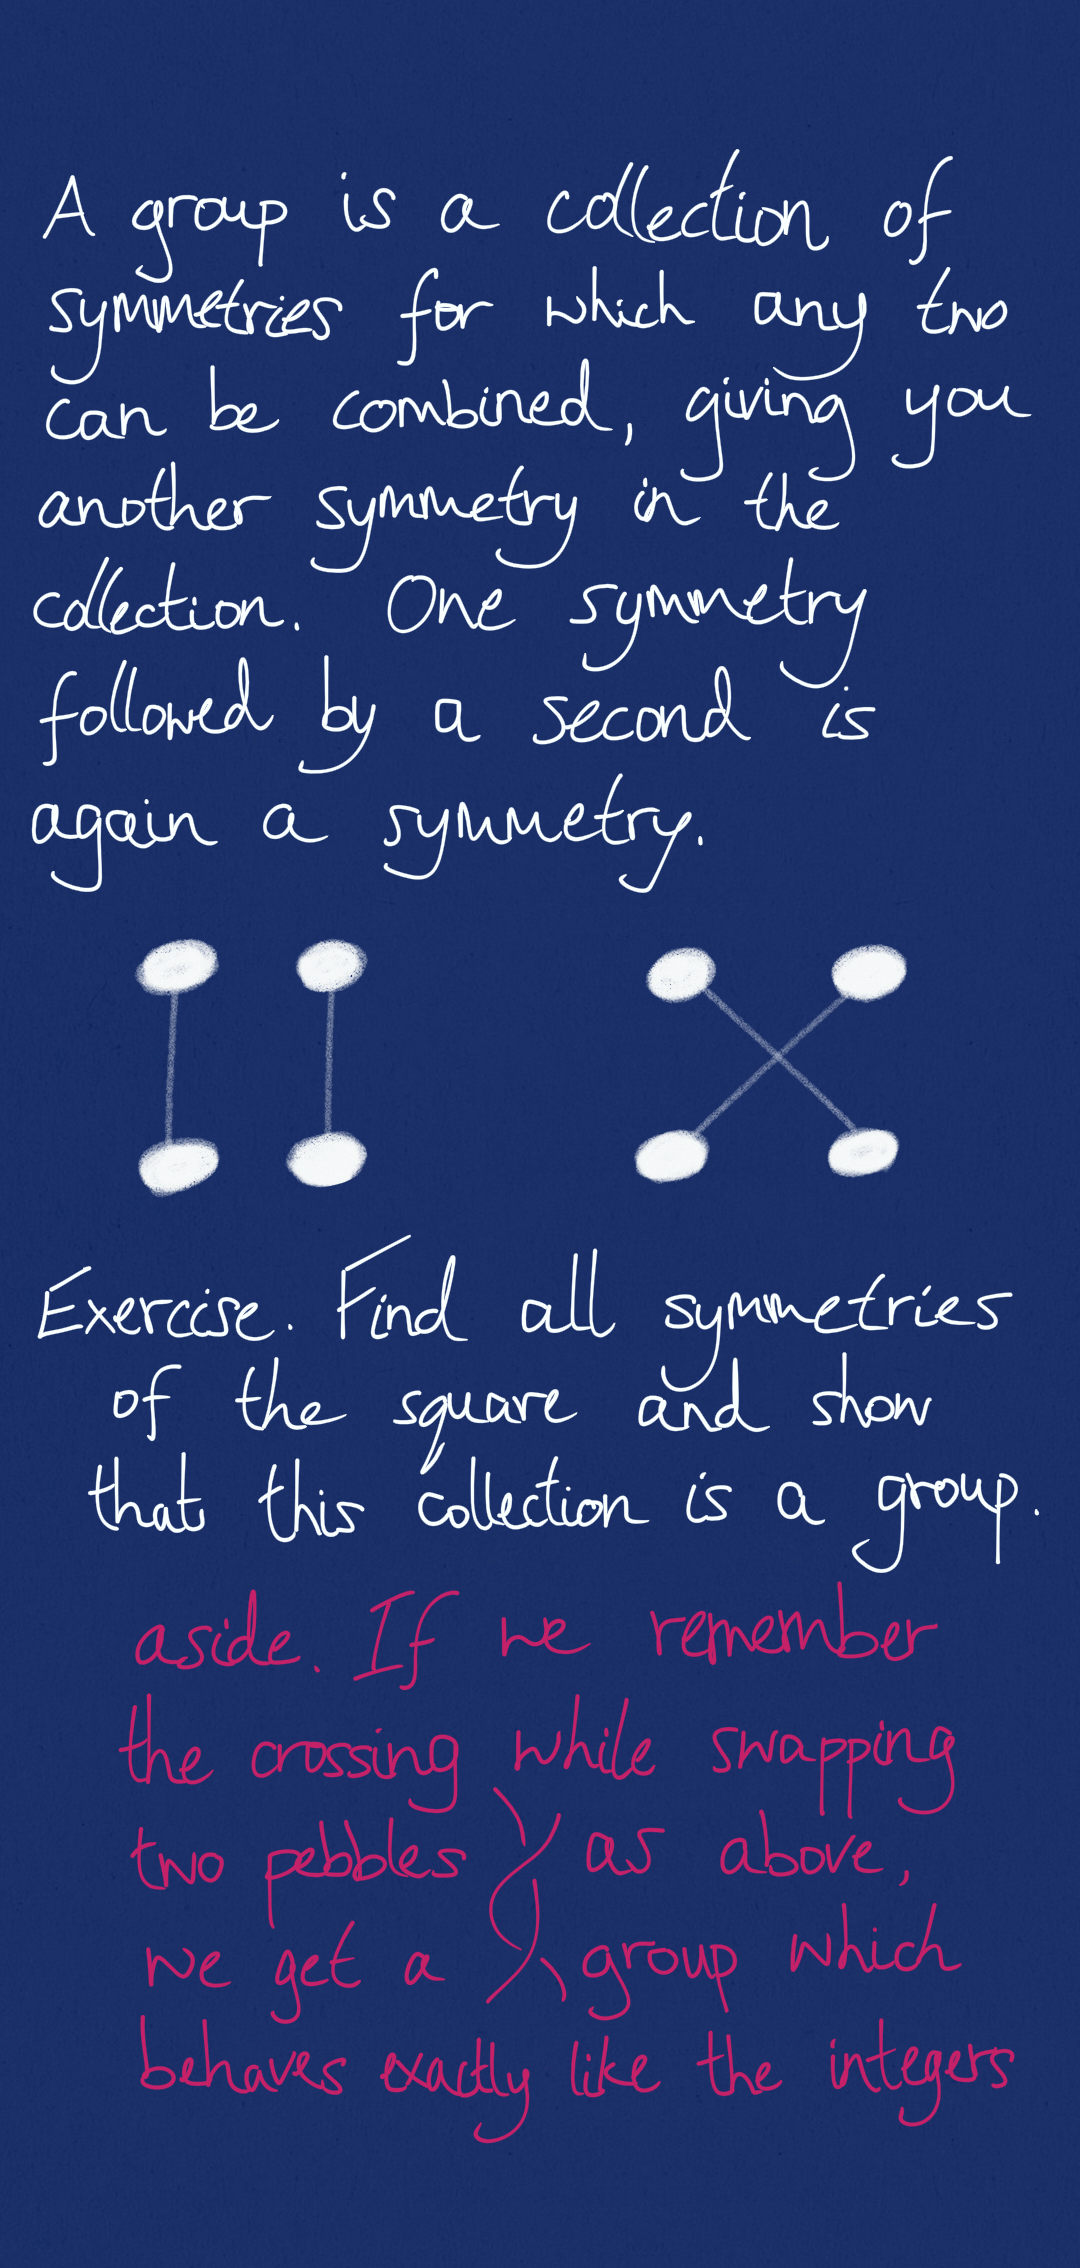 A group is a collection of
symmetries for which any two
can be combined, giving you
another symmetry in the
collection. One symmetry
followed by a second is
again a symmetry.
Exercise. Find all symmetries
of the square and show
that this collection is a group.
aside. If we remember
the crossing while swapping
two pebbles as above,
we get a group which
behaves exactly like the integers